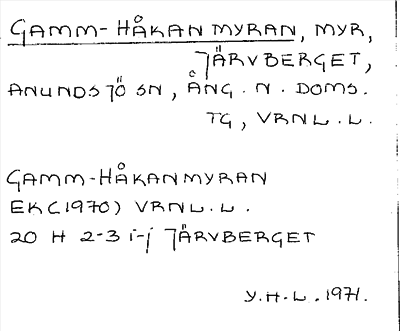 GAMM-HÅKANMYRAN, MYR,
JÄRVBERGET,
ANUNDSJÖ SN, ÅNG. N. DOMS.
TG, VRNL.L.
GAMM-HÅKANMYRAN
EK(1970) VRNL.L.
20 H 2-3 i-j JÄRVBERGET
Y.H-L. 1971.